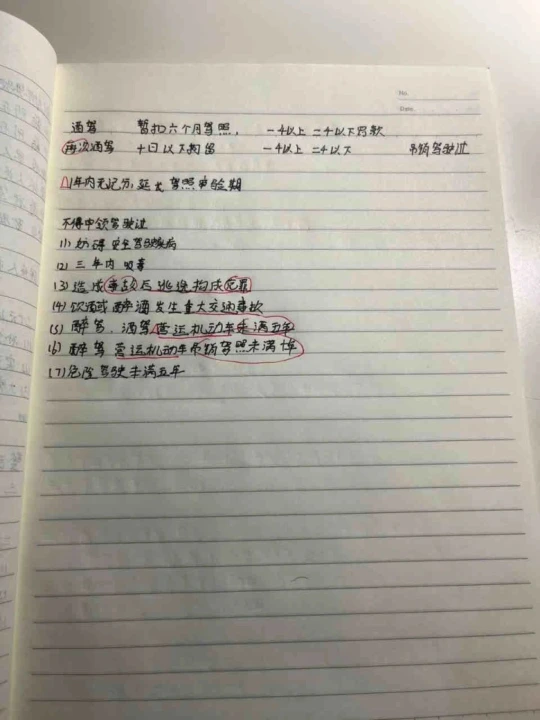 No.
Date.
酒驾 暂扣六个月驾照, 一千以上 二千以下罚款
再次酒驾 十日以下拘留 一千以上 二千以下 吊销驾驶证
1年内无记分, 延长 驾照审验期
不得申领驾驶证
(1) 妨碍安全驾驶疾病
(2) 三年内 吸毒
(3) 造成事故后逃逸构成犯罪
(4) 饮酒或醉酒发生重大交通事故
(5) 醉驾、酒驾营运机动车未满五年
(6) 醉驾 营运机动车吊销驾照未满十年
(7) 危险驾驶未满五年